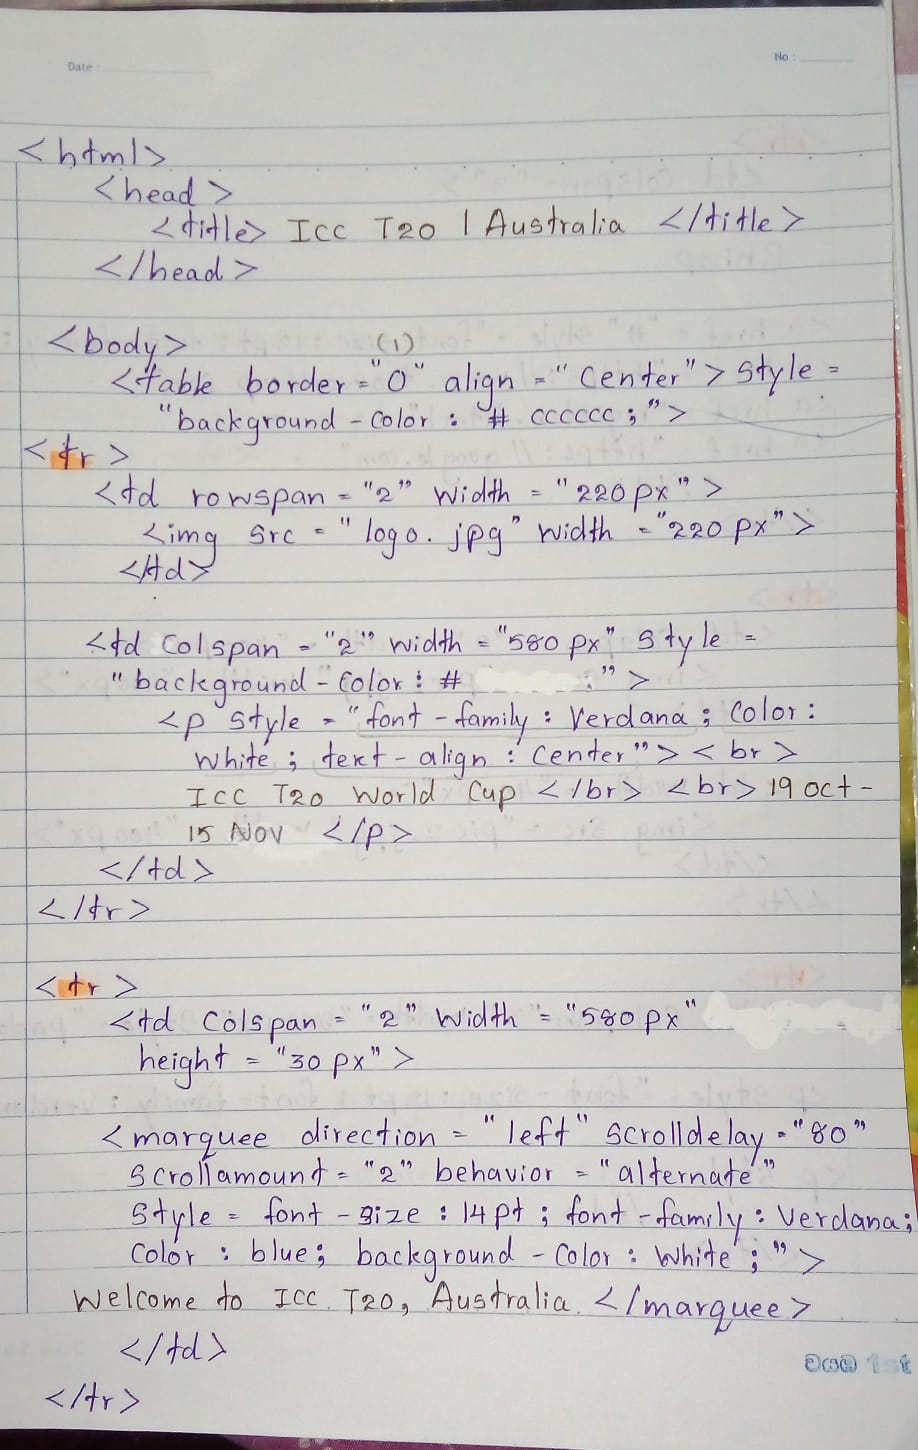 Date :
No :
<html>
<head>
<title> Icc T20 | Australia </title>
</head>
<body>
(1)
<table border = "0" align = "center"> style =
"background - color : # cccccc ;">
<tr>
<td rowspan = "2" width = "220 px">
<img src = "logo. jpg" width = "220 px">
</td>
<td colspan = "2" width = "580 px" style =
"background - color : # ;">
<p style = "font - family : Verdana ; color :
white ; text - align : center"> <br>
ICC T20 World Cup </br> <br> 19 oct -
15 Nov </p>
</td>
</tr>
<tr>
<td colspan = "2" width = "580 px"
height = "30 px">
<marquee direction = "left" scrolldelay = "80"
scrollamount = "2" behavior = "alternate"
style = font - size : 14 pt ; font - family : Verdana;
color : blue; background - color : white ;">
Welcome to ICC T20, Australia. </marquee>
</td>
</tr>
1st